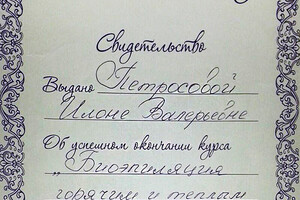 Свидетельство
Выдано Петросовой
Илоне Валерьевне
Об успешном окончании курса
„Биоэпиляция
горячим и теплым